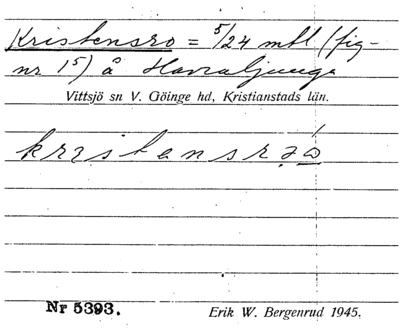 Kristensro = 5/24 mtl (fig-
nr 15) å Havraljunga
Vittsjö sn V. Göinge hd, Kristianstads län.
kristansr
Nr 5393.
Erik W. Bergenrud 1945.